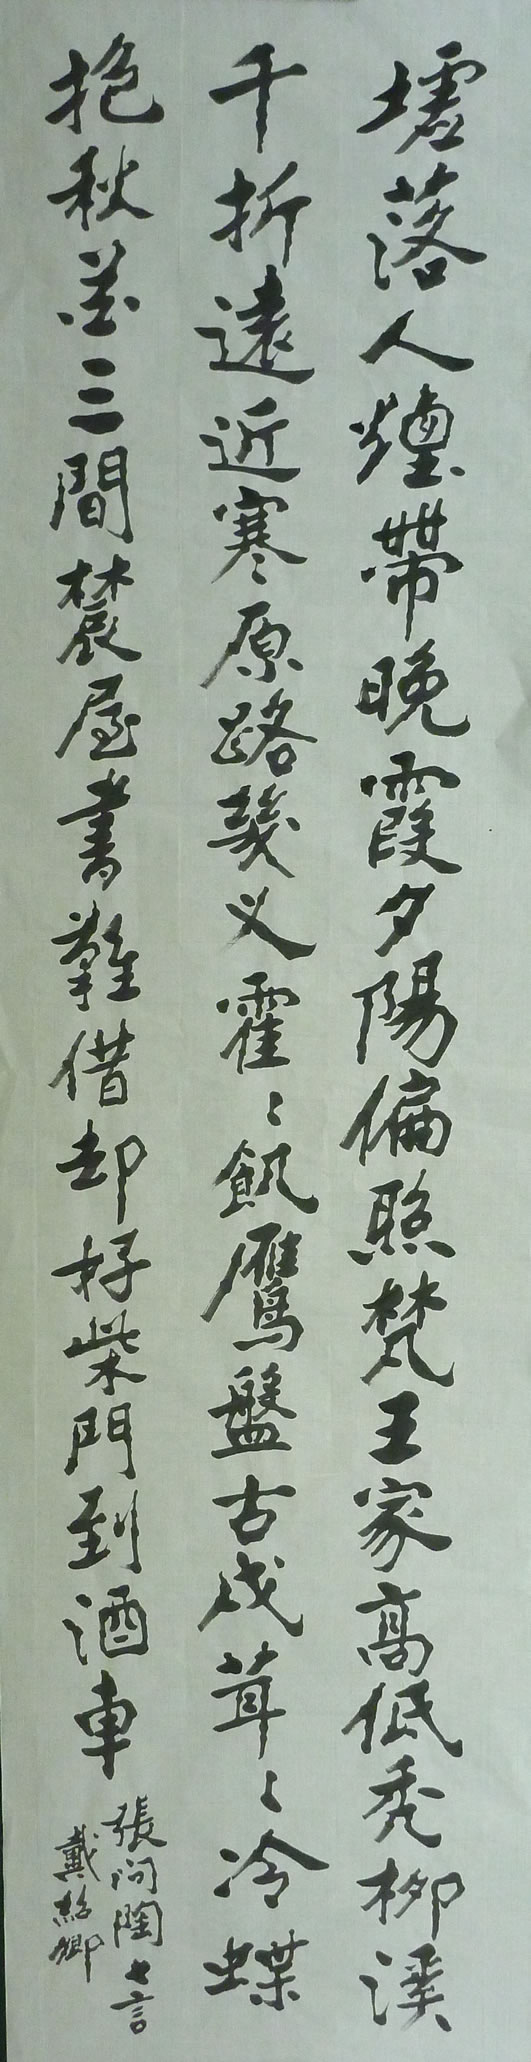 墟落人煙帶晚霞夕陽偏照梵王家高低秃柳溪
千折遠近寒原路幾义霍〻飢鷹盤古戍茸〻冷蝶
抱秋花三間農屋書難借却好柴門到酒車
張问陶七言
戴紹卿